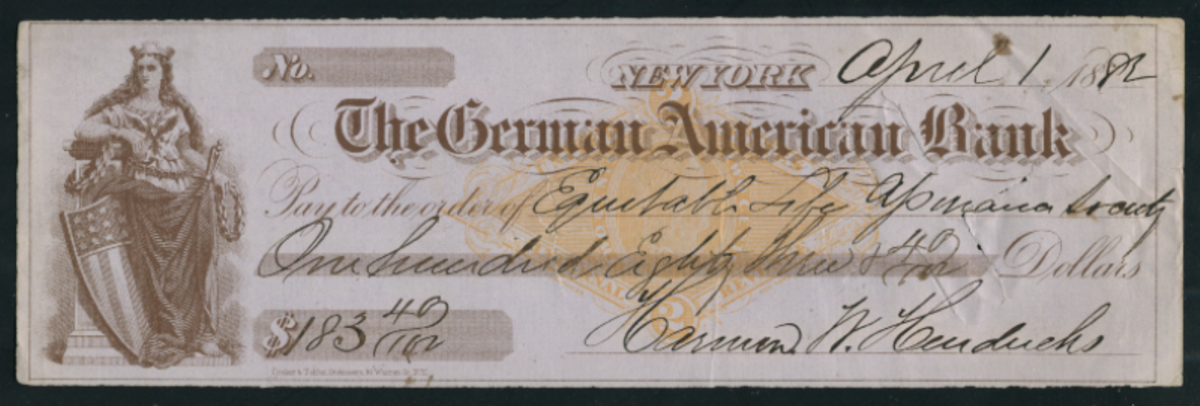 No.
NEW YORK April 1 1882
The German American Bank
Pay to the order of Equitable Life Assurance Society
One hundred Eighty three & 40/100 Dollars
$183 40/100
Harmon W. Hendricks